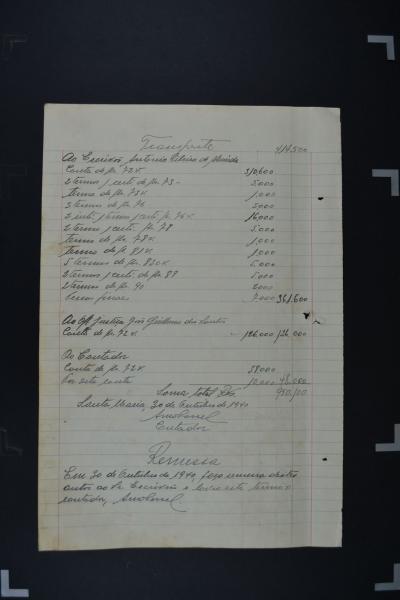 Transporte 414.500
Ao Escrivão Antonio Ribeiro de Almeida
Conta de fls. 72v. 310.600
2 termos 1 cert. de fls. 73 - 5.000
termo de fls. 75v. 1.000
3 termos de fls. 76 3.000
1 termo 1 cert. fls. 76v. 16.000
2 termos 1 cert. fls. 78 5.000
termo de fls. 78v. 1.000
termo de fls. 81v. 1.000
5 termos de fls. 83v. 5.000
2 termos 1 cert. de fls. 88 5.000
2 termos de fls. 90 2.000
7.000 361.600
Ao Off. Justiça José Guilherme dos Santos
Conta de fls. 72v. 126.000 126.000
Ao Contador
Conta de fls. 72v. 38.000
Por esta conta 10.000 48.000
Soma total Rs. 950.100
Santa Maria, 30 de Outubro de 1940
Contador
Remessa
Em 30 de Outubro de 1940, faço remessa destes
autos ao Sr. Escrivão e lavro este termo.
contador,